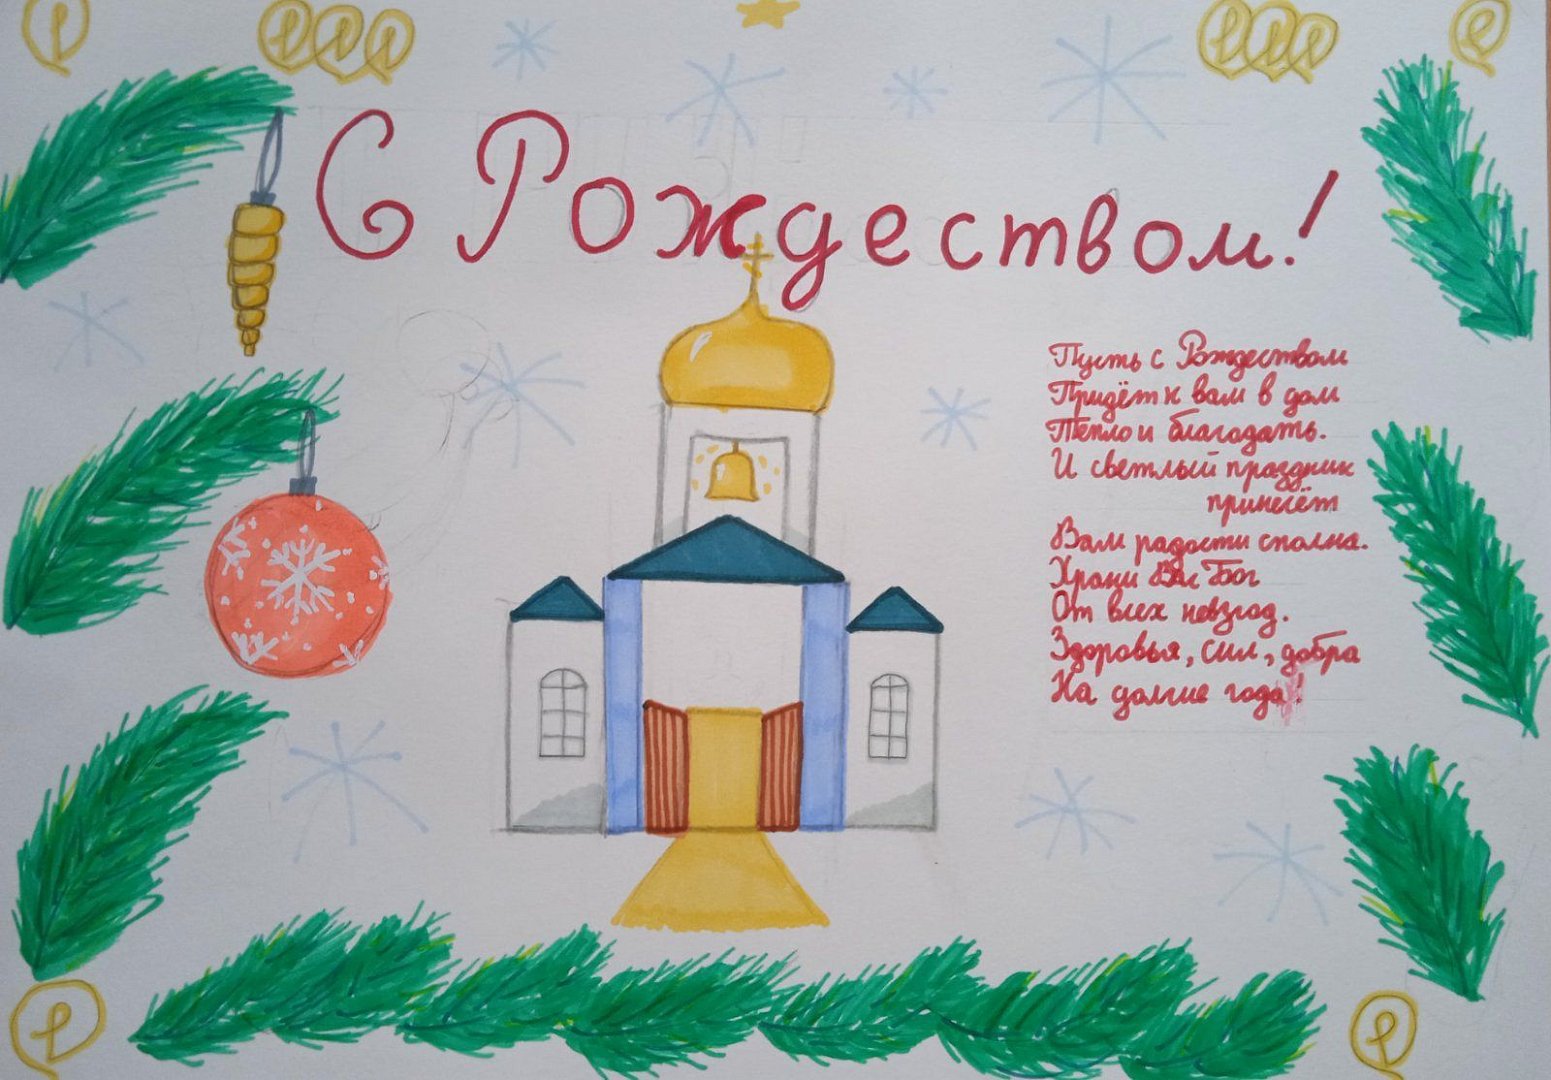 С Рождеством!
Пусть с Рождеством
Придёт к вам в дом
Тепло и благодать.
И светлый праздник
принесёт
Вам радости сполна.
Храни Вас Бог
От всех невзгод.
Здоровья, сил, добра
На долгие года!